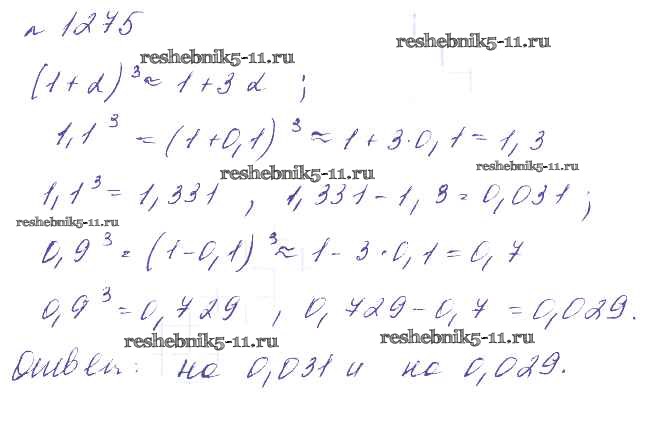 № 1275
reshebnik5-11.ru
reshebnik5-11.ru
(1+α)³ ≈ 1+3α ;
1,1³ = (1+0,1)³ ≈ 1+3·0,1 = 1,3
reshebnik5-11.ru
reshebnik5-11.ru
1,1³ = 1,331 , 1,331 - 1,3 = 0,031 ;
reshebnik5-11.ru
0,9³ = (1-0,1)³ ≈ 1-3·0,1 = 0,7
0,9³ = 0,729 , 0,729 - 0,7 = 0,029.
reshebnik5-11.ru
reshebnik5-11.ru
Ответ: на 0,031 и на 0,029.